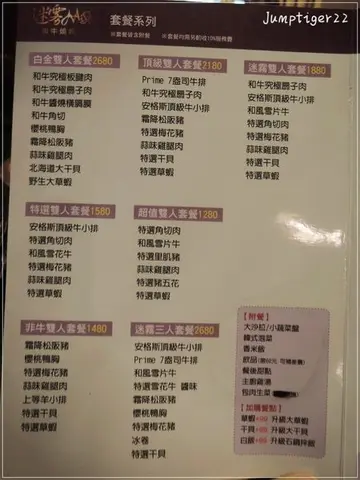 Jumptiger22
套餐系列
※套餐皆含附餐
※套餐均需另酌收10%服務費
白金雙人套餐2680
和牛究極板腱肉
和牛究極扇子肉
和牛醬燒橫膈膜
和牛角切
櫻桃鴨胸
霜降松阪豬
蒜味雞腿肉
北海道大干貝
野生大草蝦
頂級雙人套餐2180
Prime 7盎司牛排
和牛究極扇子肉
安格斯頂級牛小排
霜降松阪豬
特選梅花豬
蒜味雞腿肉
特選干貝
特選草蝦
迷霧雙人套餐1880
和牛究極扇子肉
安格斯頂級牛小排
和風雪片牛
特選角切肉
特選梅花豬
蒜味雞腿肉
特選干貝
特選草蝦
特選雙人套餐1580
安格斯頂級牛小排
特選角切肉
和風雪花牛
特選梅花豬
蒜味雞腿肉
特選草蝦
超值雙人套餐1280
特選角切肉
和風雪片牛
特選里肌豬
蒜味雞腿肉
特選豬五花
特選草蝦
非牛雙人套餐1480
霜降松阪豬
櫻桃鴨胸
特選梅花豬
蒜味雞腿肉
上等羊小排
特選干貝
特選草蝦
迷霧三人套餐2680
安格斯頂級牛小排
Prime 7盎司牛排
和風雪片牛
特選雪花牛 醬味
霜降松阪豬
櫻桃鴨胸
特選梅花豬
冰卷
特選干貝
【附餐】
大沙拉/小蔬菜盤
韓式泡菜
香米飯
飲品
餐後甜點
主廚雞湯
包肉生菜
【加購餐點】
草蝦 升級大草蝦
干貝 升級大干貝
白飯 升級石鍋拌飯